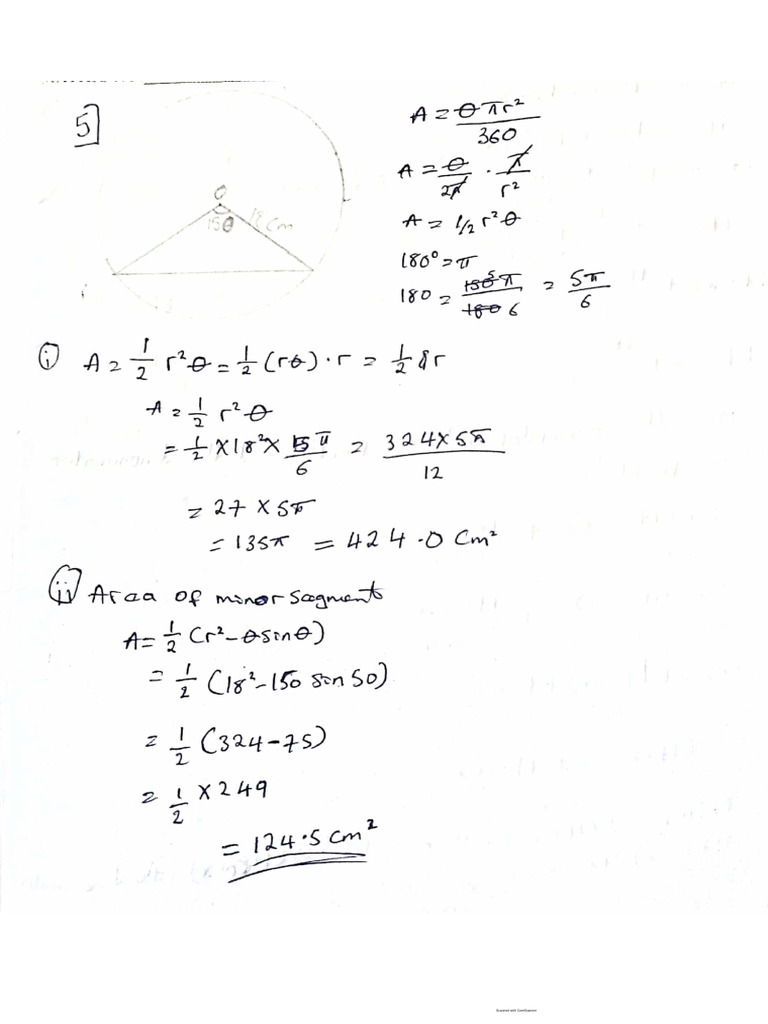 5
O
150
18 cm
A = θπr²/360
A = θ/2π · π/r²
A = 1/2 r²θ
180° = π
180 = 150 5 π/180 6 = 5π/6
(i) A = 1/2 r²θ = 1/2 (rθ) · r = 1/2 lr
A = 1/2 r²θ
= 1/2 × 18² × 5π/6 = 324 × 5π/12
= 27 × 5π
= 135π = 424.0 cm²
(ii) Area of minor segment
A = 1/2 (r² - θ sin θ)
= 1/2 (18² - 150 sin 50)
= 1/2 (324 - 75)
= 1/2 × 249
= 124.5 cm²
Scanned with CamScanner